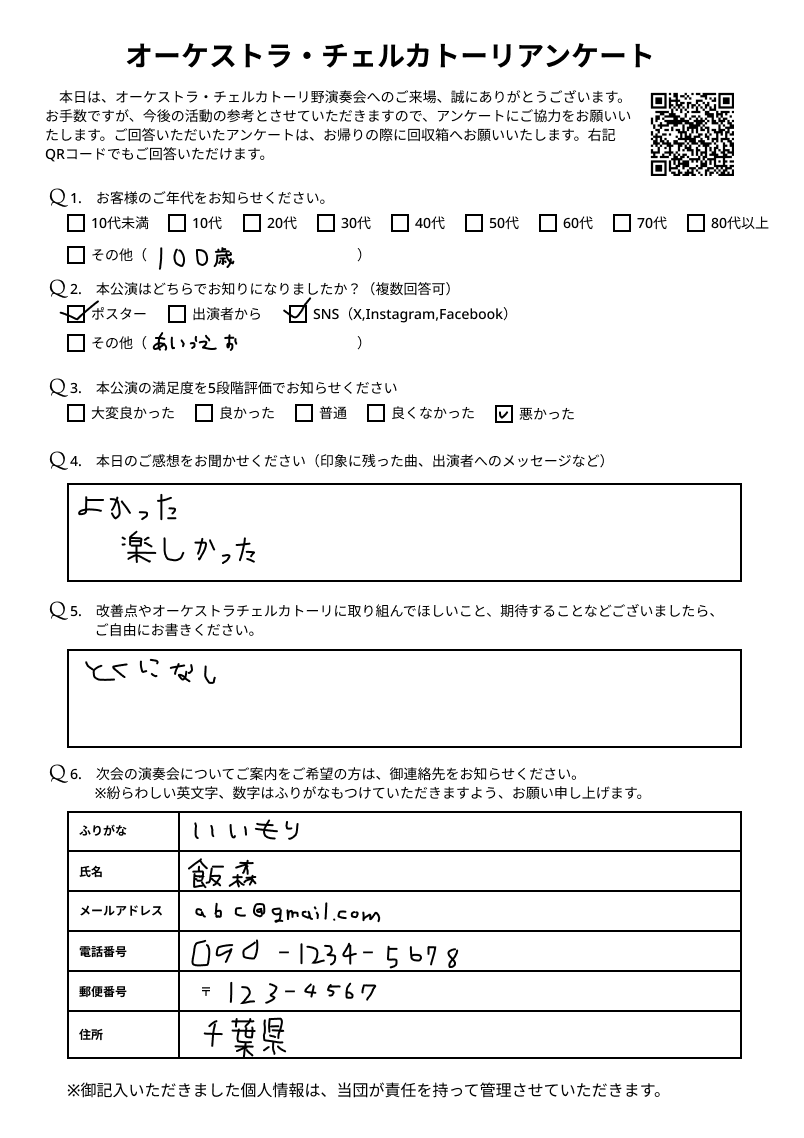 オーケストラ・チェルカトーリアンケート
本日は、オーケストラ・チェルカトーリ野演奏会へのご来場、誠にありがとうございます。
お手数ですが、今後の活動の参考とさせていただきますので、アンケートにご協力をお願いい
たします。ご回答いただいたアンケートは、お帰りの際に回収箱へお願いいたします。右記
QRコードでもご回答いただけます。
Q1. お客様のご年代をお知らせください。
10代未満 10代 20代 30代 40代 50代 60代 70代 80代以上
その他（ 100歳 ）
Q2. 本公演はどちらでお知りになりましたか？（複数回答可）
ポスター 出演者から SNS（X,Instagram,Facebook）
その他（ あいうえお ）
Q3. 本公演の満足度を5段階評価でお知らせください
大変良かった 良かった 普通 良くなかった 悪かった
Q4. 本日のご感想をお聞かせください（印象に残った曲、出演者へのメッセージなど）
よかった
楽しかった
Q5. 改善点やオーケストラチェルカトーリに取り組んでほしいこと、期待することなどございましたら、
ご自由にお書きください。
とくになし
Q6. 次会の演奏会についてご案内をご希望の方は、御連絡先をお知らせください。
※紛らわしい英文字、数字はふりがなもつけていただきますよう、お願い申し上げます。
ふりがな いいもり
氏名 飯森
メールアドレス abc@gmail.com
電話番号 090-1234-5678
郵便番号 〒 123-4567
住所 千葉県
※御記入いただきました個人情報は、当団が責任を持って管理させていただきます。